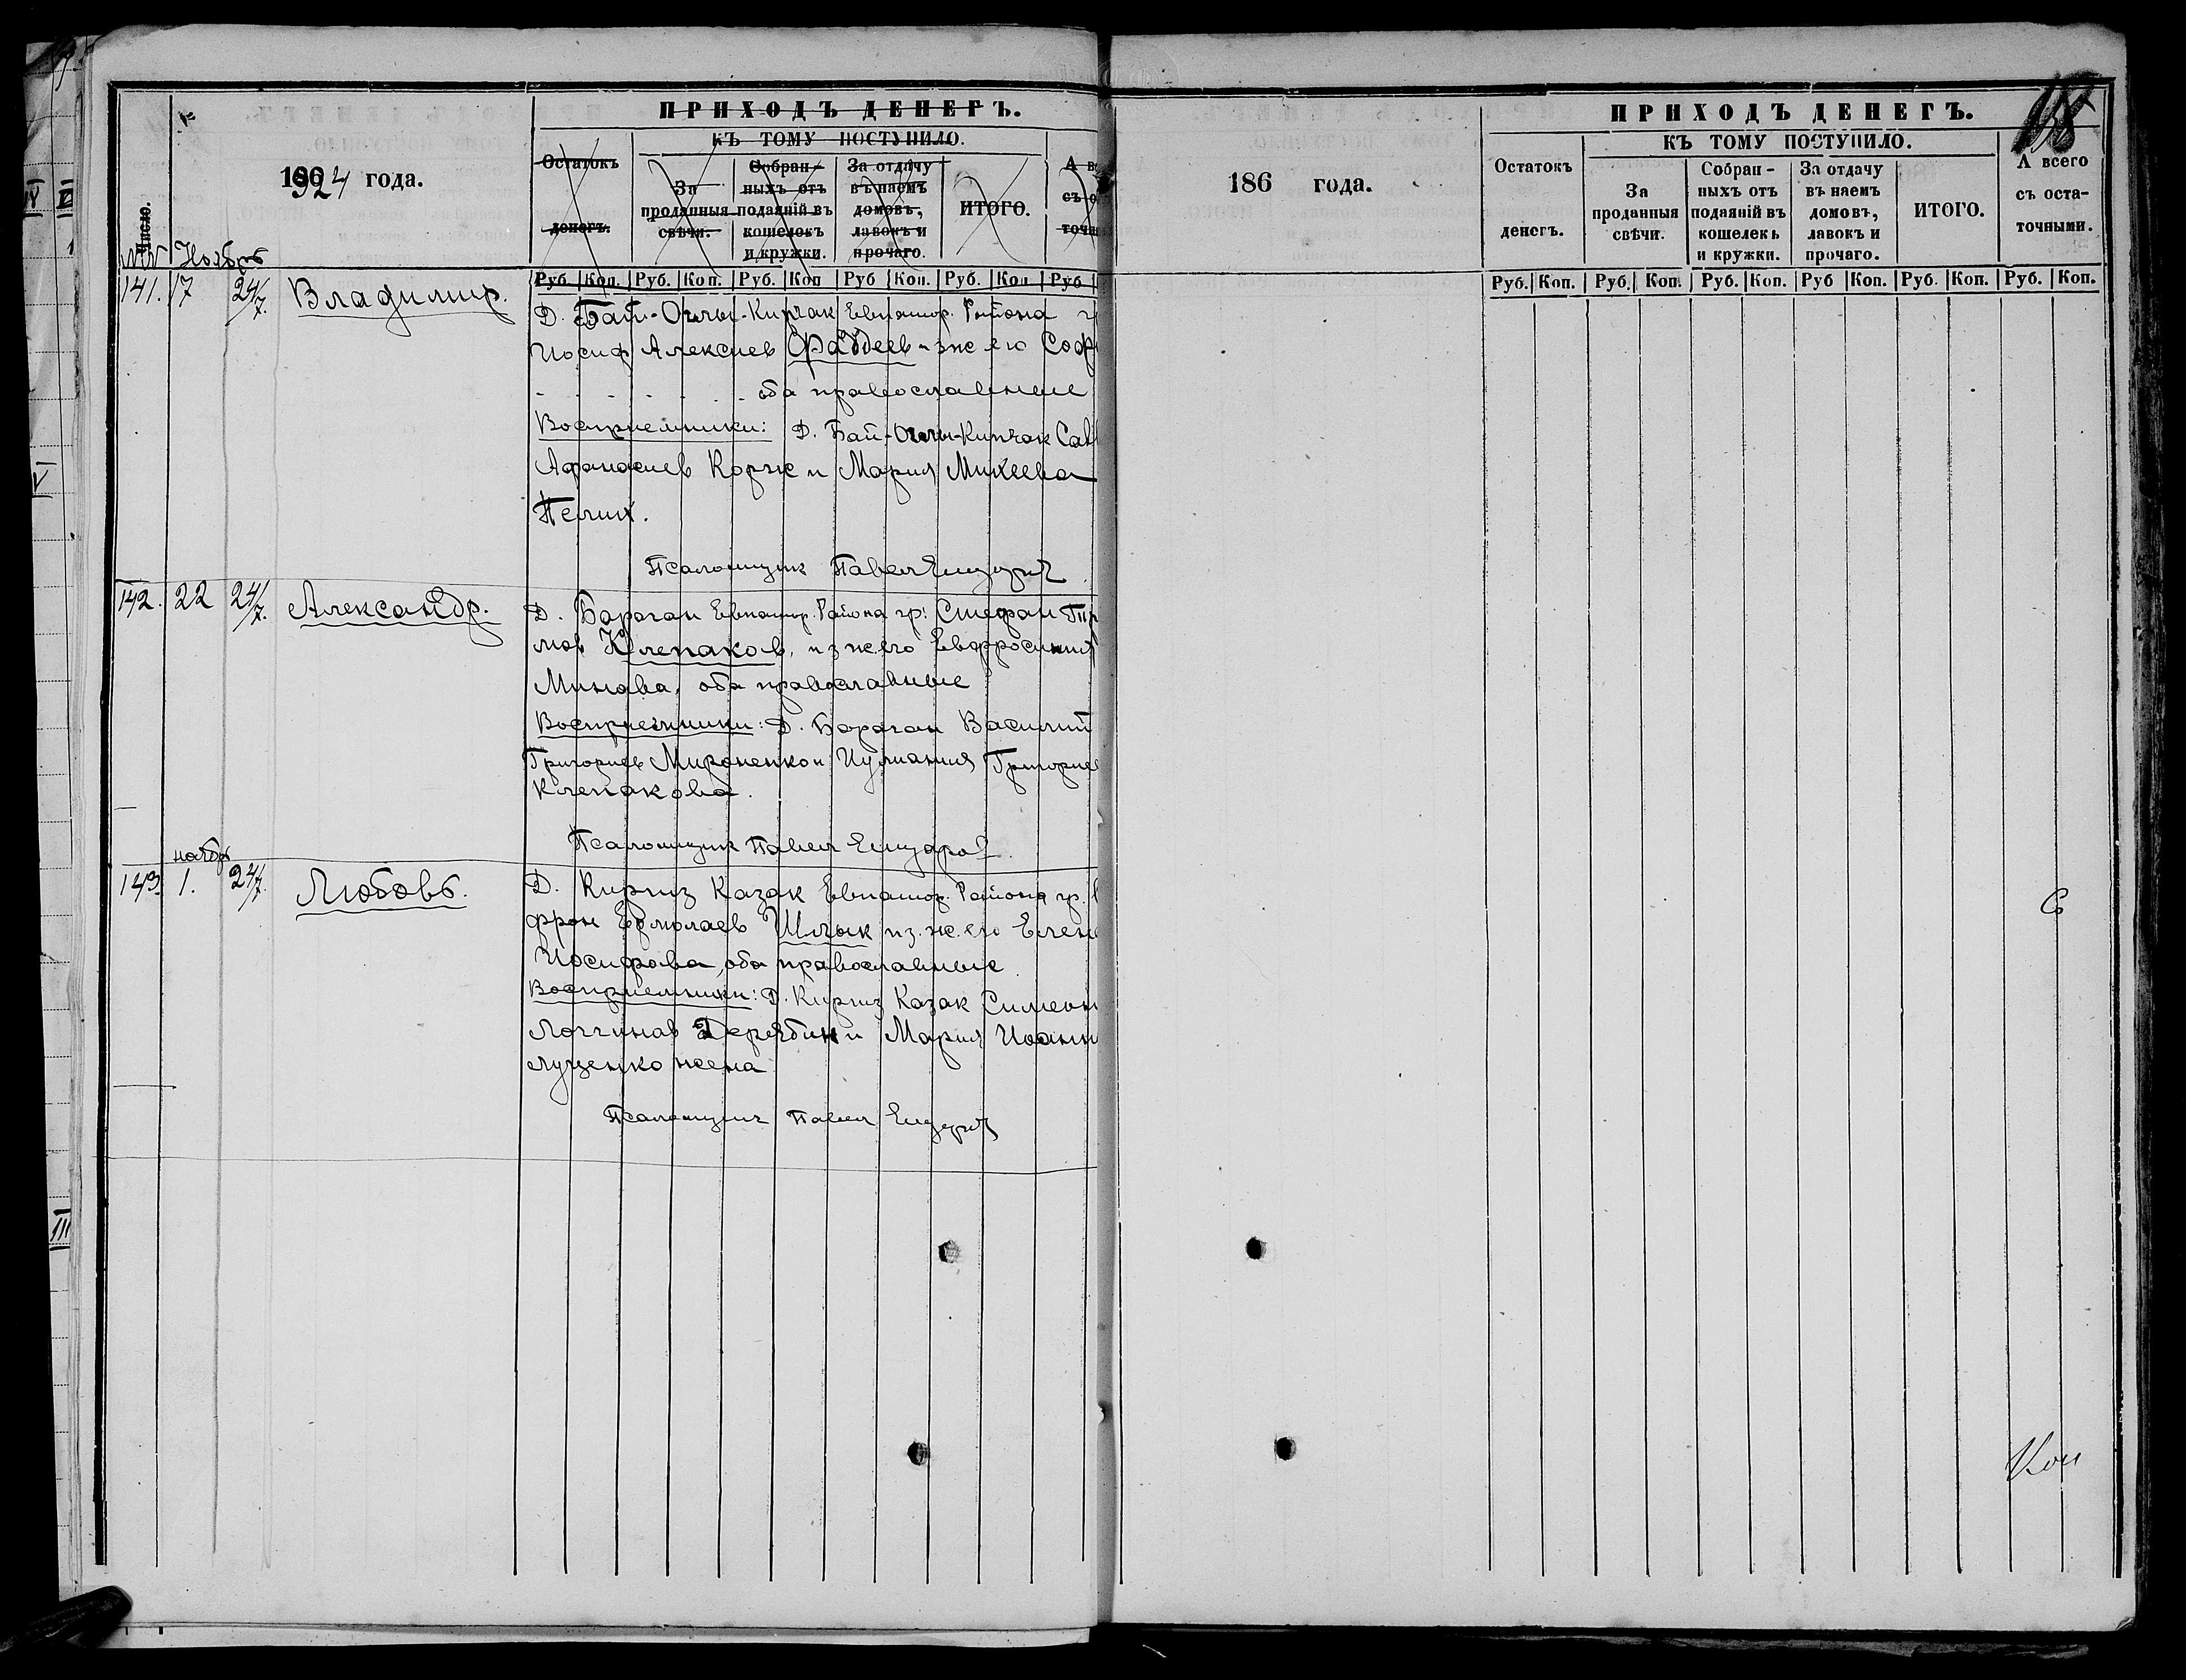 ПРИХОДЪ ДЕНЕГЪ.
КЪ ТОМУ ПОСТУПИЛО.
1924 года.
Число.
Остатокъ
денегъ.
За
проданныя
свѣчи.
Собран-
ныхъ отъ
подаяній въ
кошелекъ
и кружки.
За отдачу
въ наемъ
домовъ,
лавокъ и
прочаго.
ИТОГО.
А в
съ о
точн
№№ Ноябрь
Руб. Коп. Руб. Коп. Руб. Коп Руб Коп. Руб. Коп Руб
141. 17 24/7. Владимир.
Д. Бай-Оглы-Кипчак Евпатор. Района г
Иосиф Алексиев Фаддеев и з. же его Соф
оба православные
Восприемники: Д. Бай-Оглы-Кипчак Сав
Афанасиев Корж и Мария Михеева
Пелих.
Псаломщик Павел
142. 22 24/7. Александр.
Д. Бараган Евпатор. Района гр. Стефан Тр
мов Клепаков, и з. же его Евфросиния
Минова, оба православные
Восприемники: Д. Бараган Василий
Григориев Мироненко и Иулиания Григорие
Клепакова.
Псаломщик Павел
ноябрь
143. 1. 24/7. Любовь.
Д. Киргиз Казак Евпатор. Района гр.
фрон Ермолаев Шлык и з. же его Елен
Иосифова, оба православные
Восприемники: Д. Киргиз Казак Симеон
Логгинов Дерябин и Мария Иоанн
Луценко жена
Псаломщик Павел
158
ПРИХОДЪ ДЕНЕГЪ.
КЪ ТОМУ ПОСТУПИЛО.
186 года.
Остатокъ
денегъ.
За
проданныя
свѣчи.
Собран-
ныхъ отъ
подаяній въ
кошелекъ
и кружки.
За отдачу
въ наемъ
домовъ,
лавокъ и
прочаго.
ИТОГО.
А всего
съ оста-
точными.
Руб. Коп. Руб. Коп. Руб. Коп. Руб Коп. Руб. Коп. Руб. Коп.